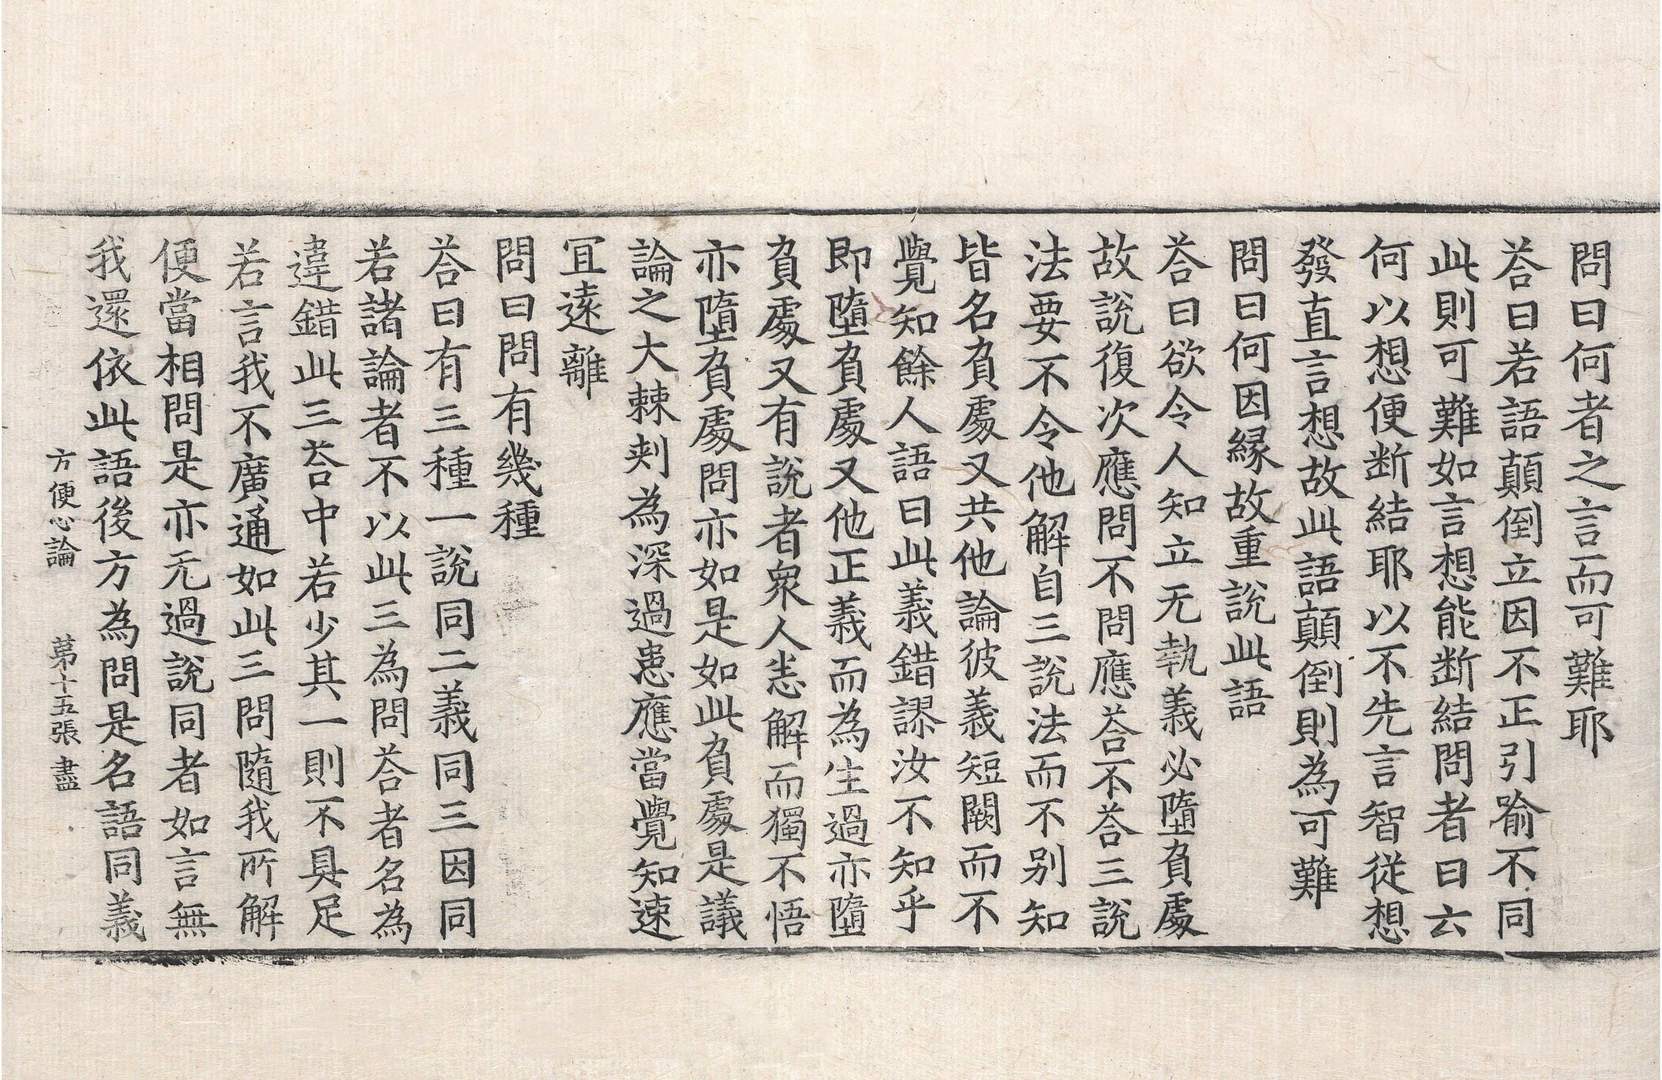 問曰何者之言而可難耶
荅曰若語顛倒立因不正引喻不同
此則可難如言想能断結問者曰云
何以想便断結耶以不先言智從想
發直言想故此語顛倒則為可難
問曰何因縁故重說此語
荅曰欲令人知立无執義必墮負處
故說復次應問不問應荅不荅三說
法要不令他解自三說法而不別知
皆名負處又共他論彼義短闕而不
覺知餘人語曰此義錯謬汝不知乎
即墮負處又他正義而為生過亦墮
負處又有說者衆人悉解而獨不悟
亦墮負處問亦如是如此負處是議
論之大棘刾為深過患應當覺知速
冝遠離
問曰問有幾種
荅曰有三種一說同二義同三因同
若諸論者不以此三為問荅者名為
違錯此三荅中若少其一則不具足
若言我不廣通如此三問隨我所解
便當相問是亦无過說同者如言無
我還依此語後方為問是名語同義
方便心論　第十五張　盡